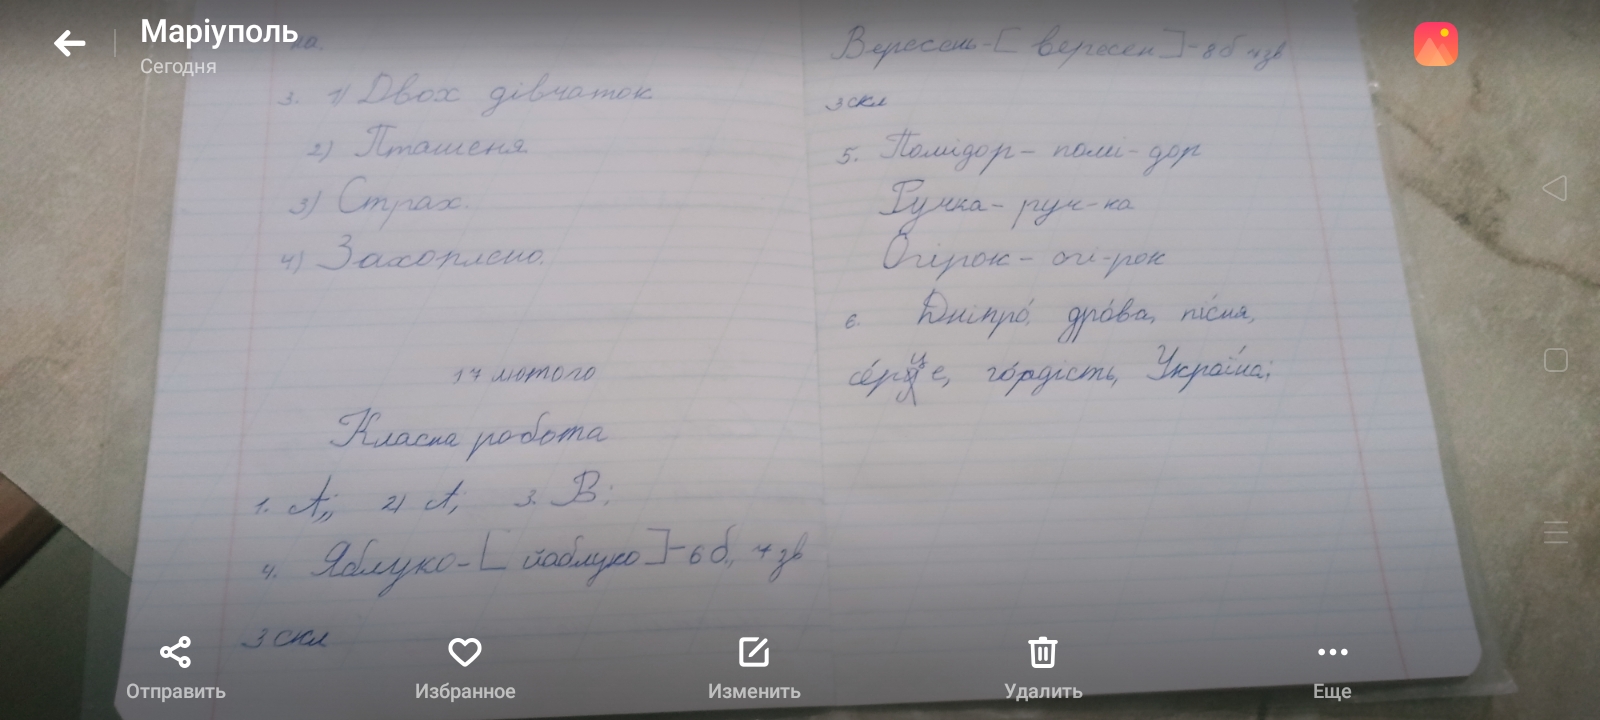 Маріуполь
Сегодня
на.
3. 1) Двох дівчаток
2) Пташеня
3) Страх.
4) Захоплено.
17 лютого
Класна робота
1. А; 2) А; 3. В;
4. Яблуко-[йаблуко]-6 б., 7 зв
3 скл
Вересень-[вересен]-8 б 7 зв
3 скл
5. Помідор- помі-дор
Ручка- руч-ка
Огірок- огі-рок
6. Дніпро́, дро́ва, пі́сня,
се́рце, го́рдість, Украї́на;
Отправить
Избранное
Изменить
Удалить
Еще